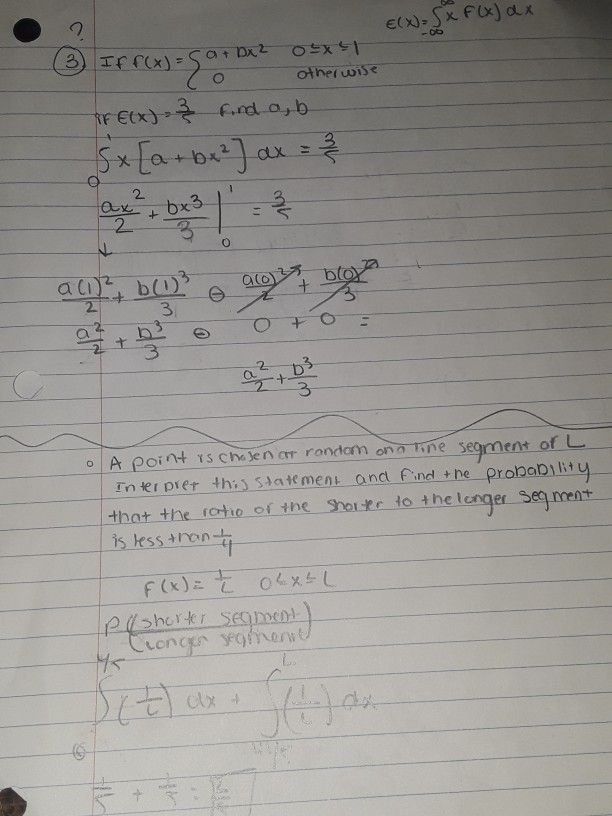 ?
E(x)=∫_{-∞}^{∞} x f(x) dx
③ If f(x) = { a + bx² 0≤x≤1
0 otherwise
if E(x) = 3/5 find a, b
∫_0^1 x[a + bx²] dx = 3/5
ax²/2 + bx³/3 |_0^1 = 3/5
↓
a(1)²/2 + b(1)³/3 ⊖ a(0)²/2 + b(0)³/3
a²/2 + b³/3 ⊖ 0 + 0 =
a²/2 + b³/3
A point is chosen at random on a line segment of L
Interpret this statement and find the probability
that the ratio of the shorter to the longer segment
is less than 1/4
f(x) = 1/L 0≤x≤L
P(shorter segment/longer segment)
∫ (1/L) dx + ∫^L (1/L) dx
1/5 + 1/5 =